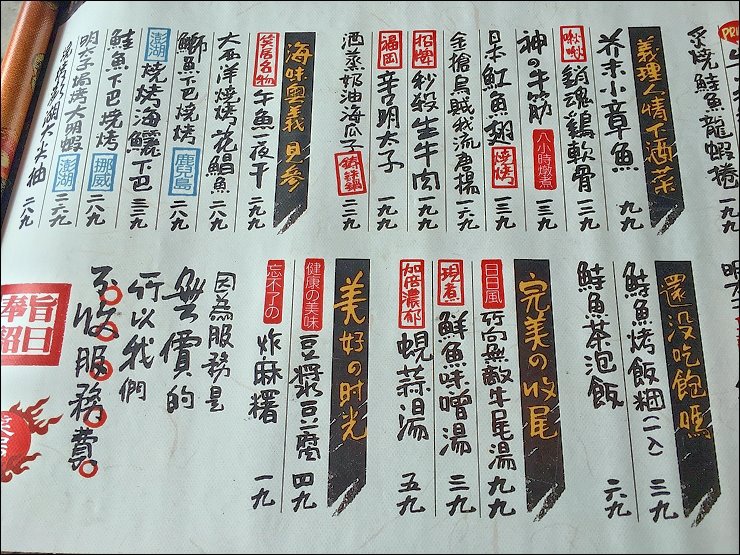 炙燒鮭魚龍蝦捲 一九九
義理人情下酒菜
芥末小章魚 九九
啾啾 銷魂雞軟骨 一三九
神の牛筋 八小時燉煮 一三九
日本魟魚翅 燒烤 一三九
金搶烏賊我流鹿揚 一六九
招牌 秒殺生牛肉 一九九
福岡 辛明太子 一九九
酒蒸奶油海瓜子 二三九
海味奧義見參
侯居名物 午魚一夜干 二九九
大西洋燒烤花鯧魚 二九九
鰤魚下巴燒烤 鹿兒島 二八九
澎湖 燒烤海鱺下巴 三三九
鮭魚下巴燒烤 挪威 二八九
明太子焗烤大明蝦 澎湖 二六九
二八九
還沒吃飽嗎
鮭魚烤飯糰(一入) 三九
鮭魚茶泡飯 六九
完美の收尾
日日風 竹宮無敵牛尾湯 九九
現煮 鮮魚味噌湯 三九
加倍濃郁 蜆蒜湯 五九
美好の时光
健康の美味 豆漿豆腐 四九
忘不了の 炸麻糬 一九
因為服務是
無價的
所以我們
不收服務費
旨日
奉韶